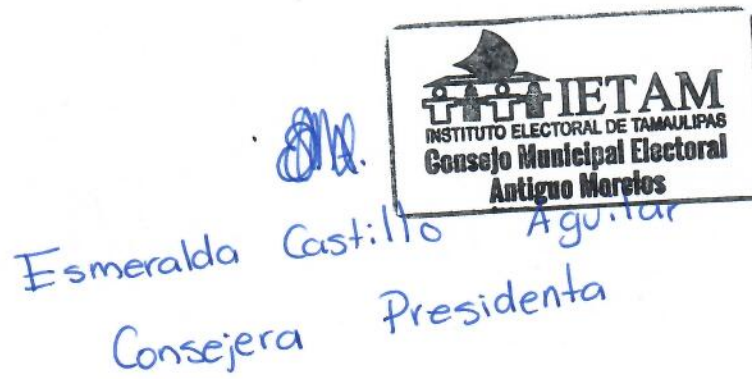 IETAM
INSTITUTO ELECTORAL DE TAMAULIPAS
Consejo Municipal Electoral
Antiguo Morelos
Esmeralda Castillo Aguilar
Consejera Presidenta